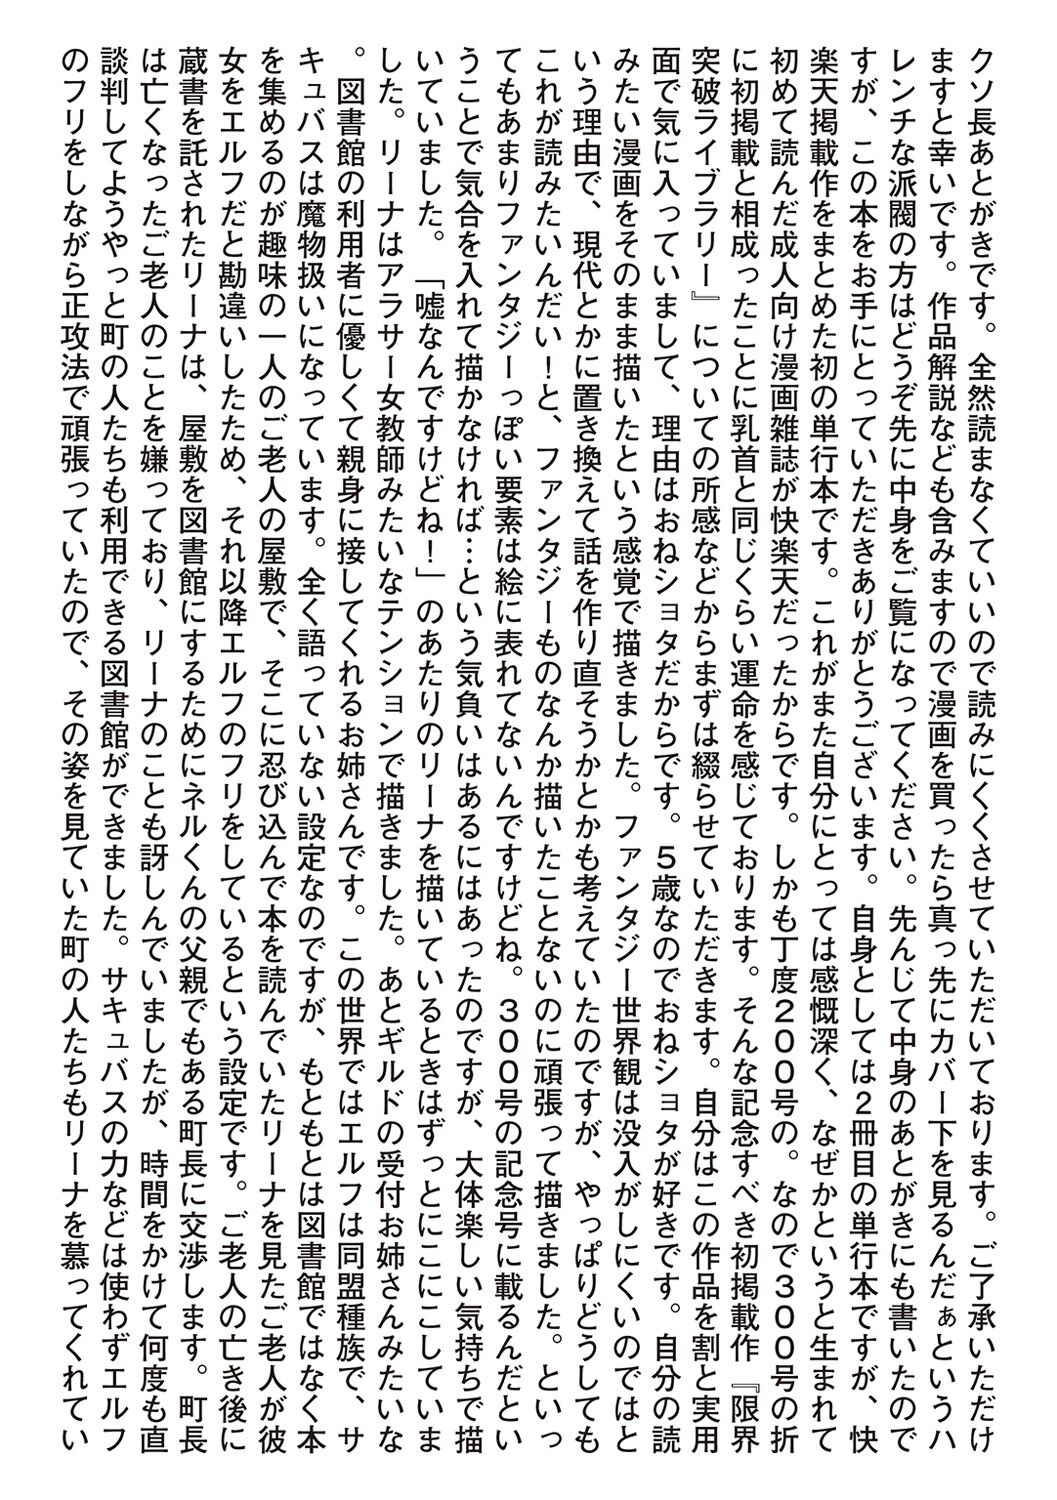 クソ長あとがきです。全然読まなくていいので読みにくくさせていただいております。ご了承いただけ
ますと幸いです。作品解説なども含みますので漫画を買ったら真っ先にカバー下を見るんだぁというハ
レンチな派閥の方はどうぞ先に中身をご覧になってください。先んじて中身のあとがきにも書いたので
すが、この本をお手にとっていただきありがとうございます。自身としては２冊目の単行本ですが、快
楽天掲載作をまとめた初の単行本です。これがまた自分にとっては感慨深く、なぜかというと生まれて
初めて読んだ成人向け漫画雑誌が快楽天だったからです。しかも丁度２００号の。なので３００号の折
に初掲載と相成ったことに乳首と同じくらい運命を感じております。そんな記念すべき初掲載作『限界
突破ライブラリー』についての所感などからまずは綴らせていただきます。自分はこの作品を割と実用
面で気に入っていまして、理由はおねショタだからです。５歳なのでおねショタが好きです。自分の読
みたい漫画をそのまま描いたという感覚で描きました。ファンタジー世界観は没入がしにくいのではと
いう理由で、現代とかに置き換えて話を作り直そうかとかも考えていたのですが、やっぱりどうしても
これが読みたいんだい！と、ファンタジーものなんか描いたことないのに頑張って描きました。といっ
てもあまりファンタジーっぽい要素は絵に表れてないんですけどね。３００号の記念号に載るんだとい
うことで気合を入れて描かなければ…という気負いはあるにはあったのですが、大体楽しい気持ちで描
いていました。「嘘なんですけどね！」のあたりのリーナを描いているときはずっとにこにこしていま
した。リーナはアラサー女教師みたいなテンションで描きました。あとギルドの受付お姉さんみたいな
。図書館の利用者に優しくて親身に接してくれるお姉さんです。この世界ではエルフは同盟種族で、サ
キュバスは魔物扱いになっています。全く語っていない設定なのですが、もともとは図書館ではなく本
を集めるのが趣味の一人のご老人の屋敷で、そこに忍び込んで本を読んでいたリーナを見たご老人が彼
女をエルフだと勘違いしたため、それ以降エルフのフリをしているという設定です。ご老人の亡き後に
蔵書を託されたリーナは、屋敷を図書館にするためにネルくんの父親でもある町長に交渉します。町長
は亡くなったご老人のことを嫌っており、リーナのことも訝しんでいましたが、時間をかけて何度も直
談判してようやっと町の人たちも利用できる図書館ができました。サキュバスの力などは使わずエルフ
のフリをしながら正攻法で頑張っていたので、その姿を見ていた町の人たちもリーナを慕ってくれてい